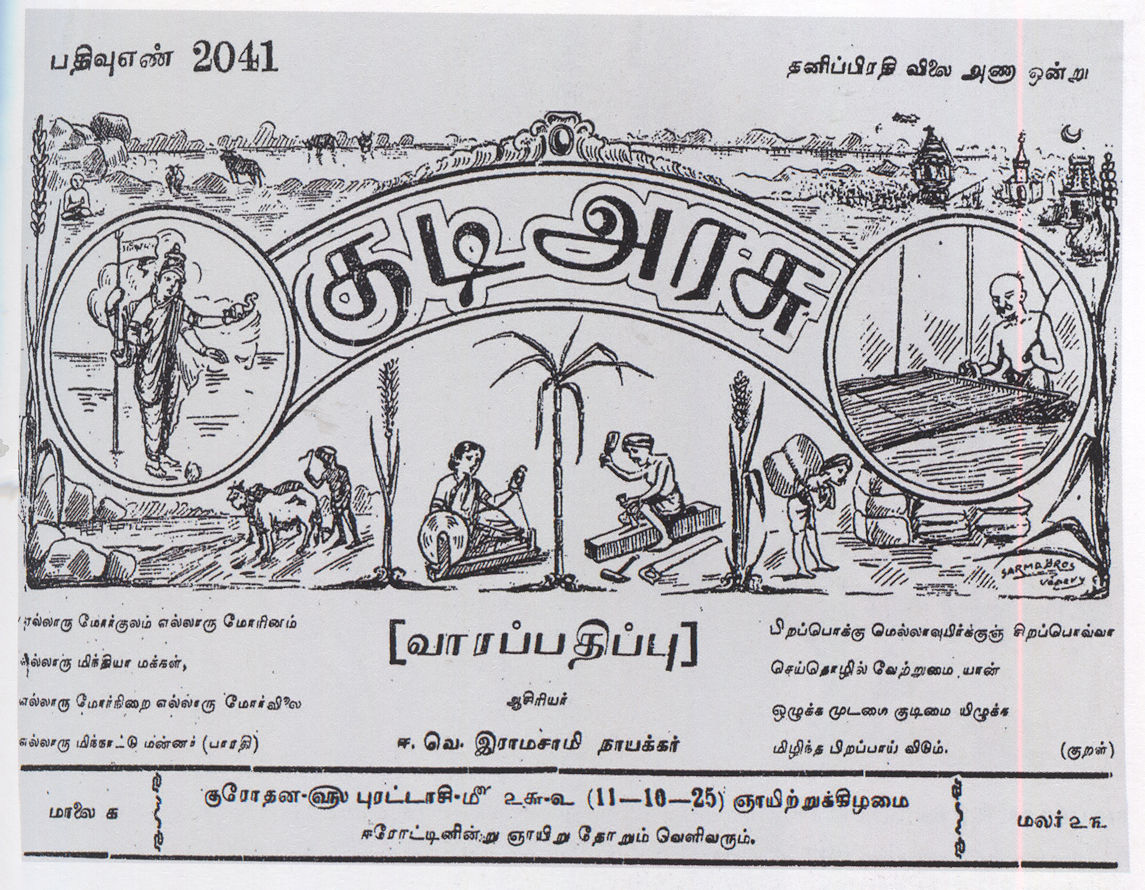 பதிவுஎண் 2041
தனிப்பிரதி விலை அணா ஒன்று
குடி அரசு
SARMA BROS
எல்லாரு மோர்குலம் எல்லாரு மோரினம்
எல்லாரு மிந்தியா மக்கள்,
எல்லாரு மோர்நிறை எல்லாரு மோர்விலை
எல்லாரு மிந்நாட்டு மன்னர் (பாரதி)
[வாரப்பதிப்பு]
ஆசிரியர்
ஈ. வெ. இராமசாமி நாயக்கர்
பிறப்பொக்கு மெல்லாவுயிர்க்குஞ் சிறப்பொவ்வா
செய்தொழில் வேற்றுமை யான்
ஒழுக்க முடமை குடிமை யிழுக்க
மிழிந்த பிறப்பாய் விடும். (குறள்)
மாலை க
குரோதன-௵ புரட்டாசி-௴ ௨௬-௨ (11—10—25) ஞாயிற்றுக்கிழமை
ஈரோட்டினின்று ஞாயிறு தோறும் வெளிவரும்.
மலர் ௨௩